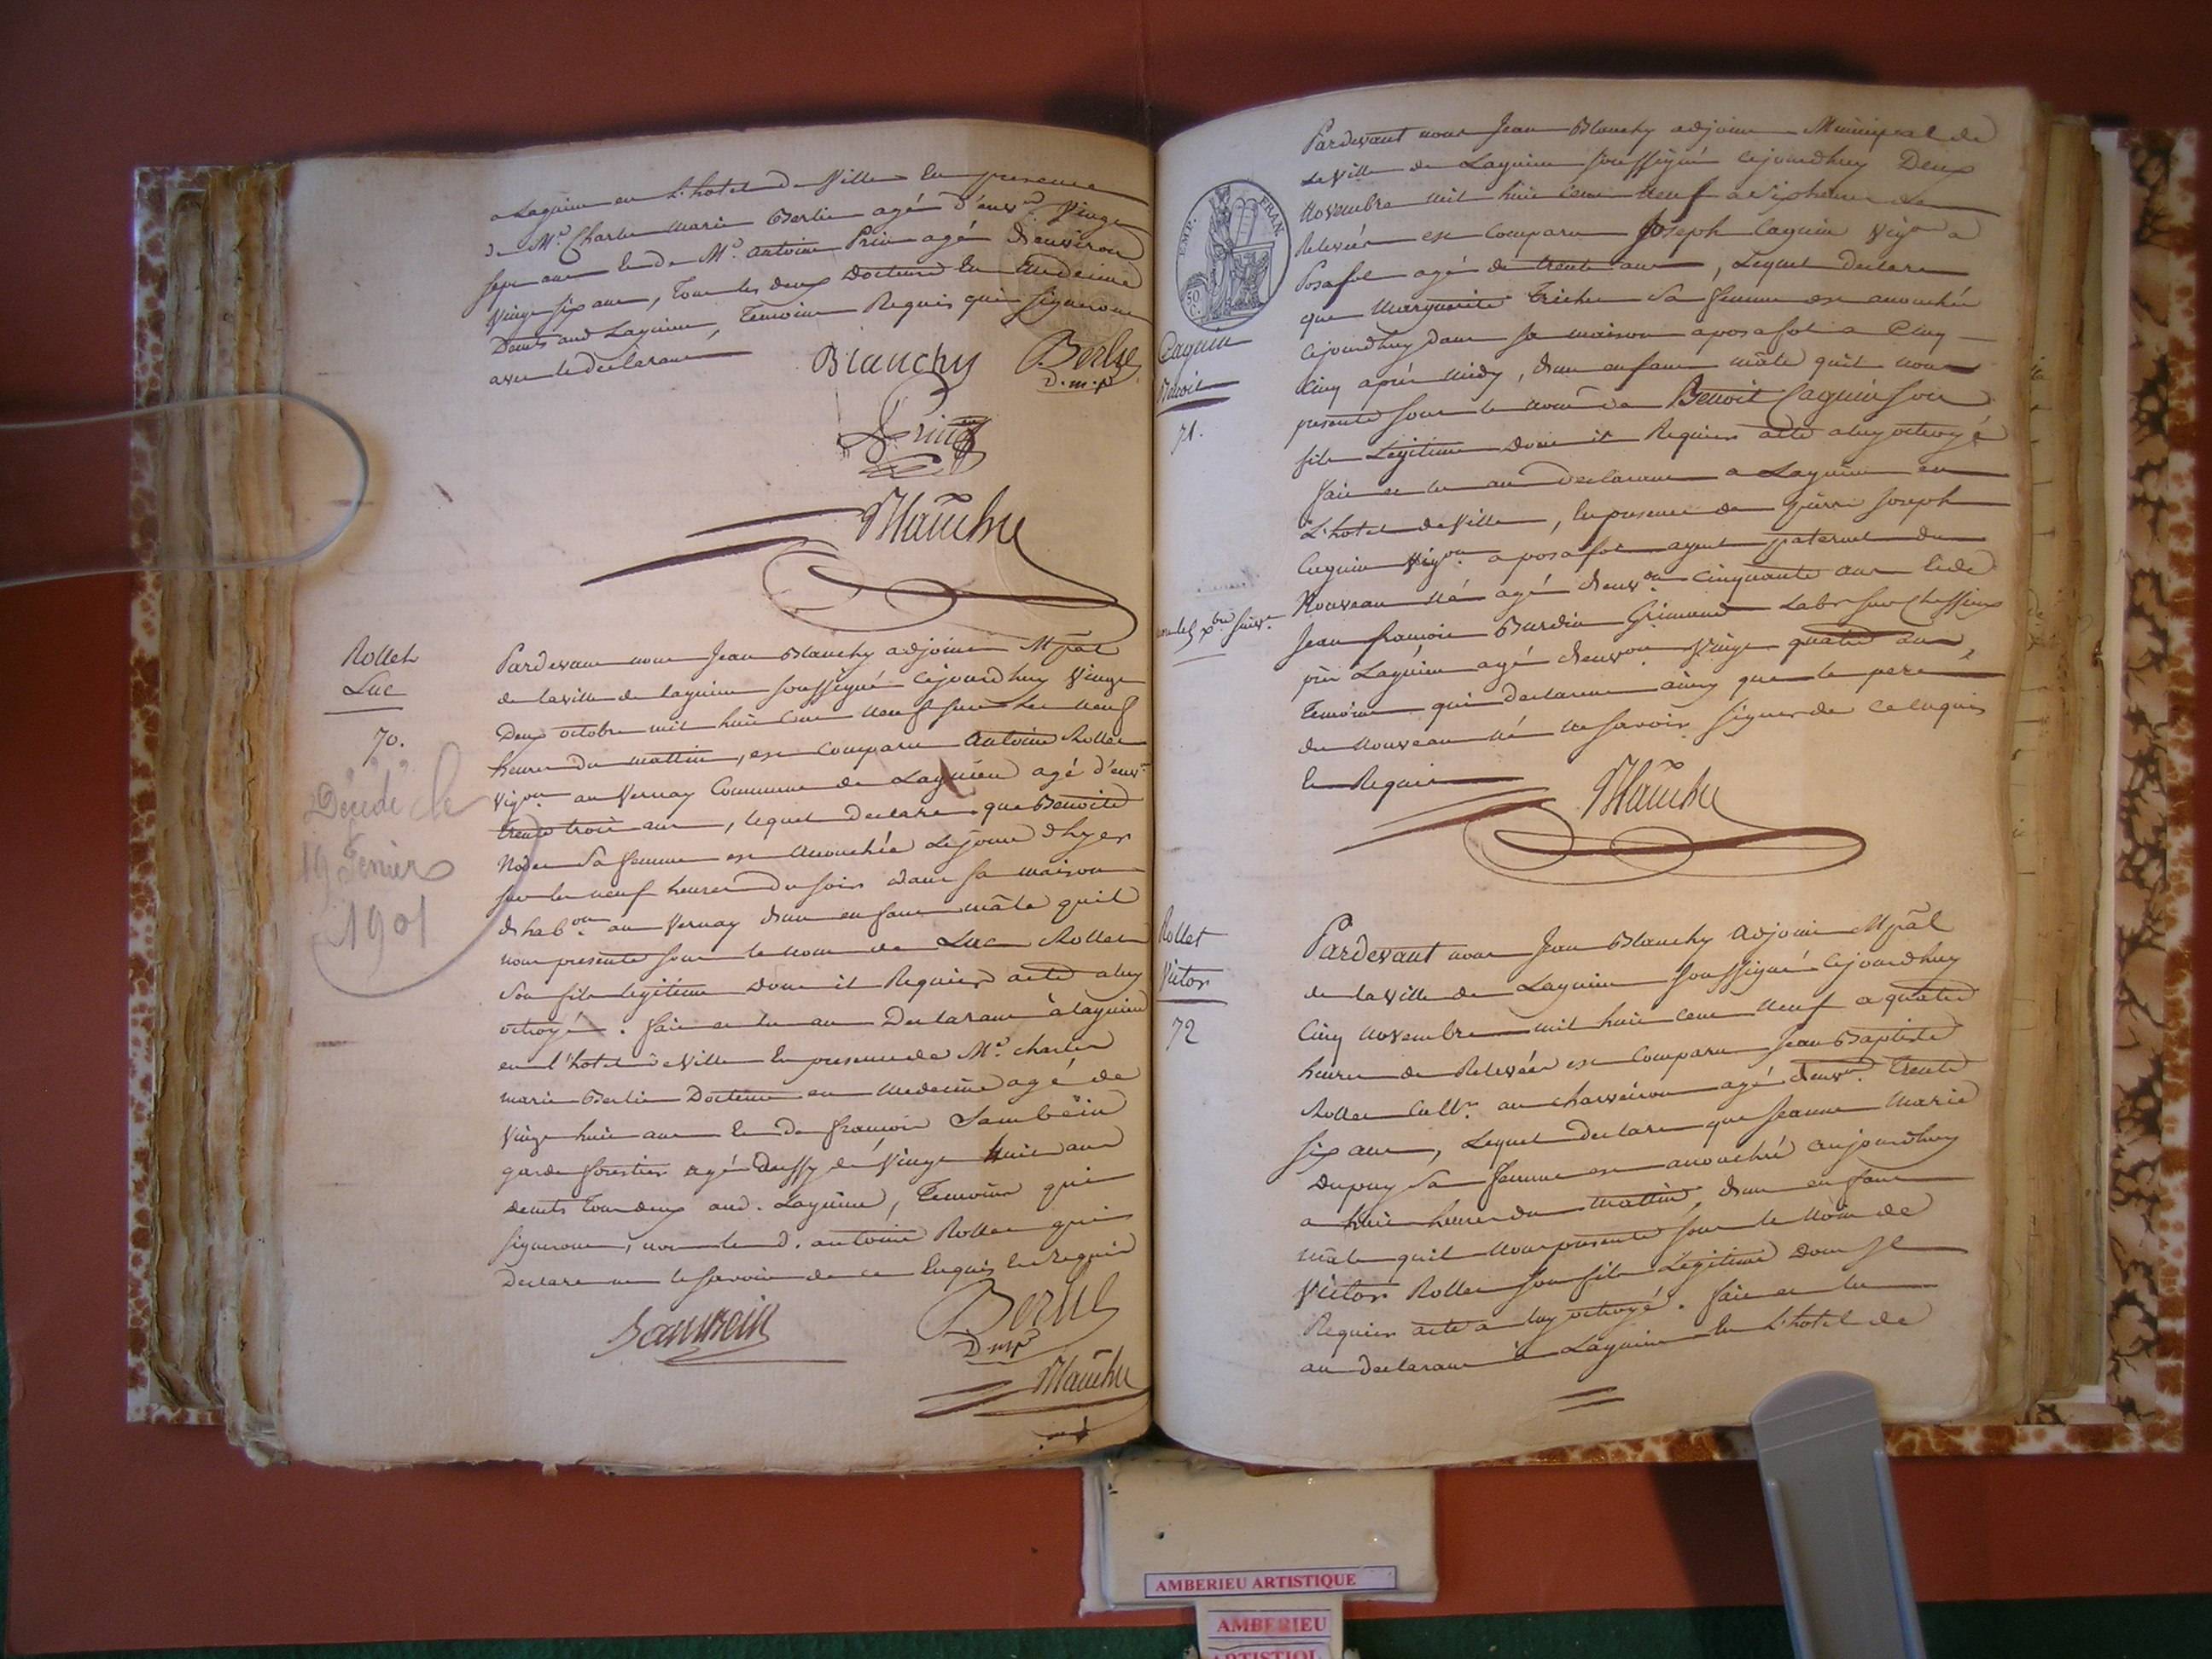 a Lagnieu en L'hotel de Ville En presence
de Mr. Charles Marie Berlie agé d'envon. Vingt
sept ans Et de Mr. Antoine Prin agé d'environ
Vingt six ans, Tous les deux Docteurs En Medecine
Demts aud Lagnieu, Temoins Requis qui signeront
avec le declarant
Blanchy Berlie
D.m.p
Prin
Blanchy
Rollet
Luc
70.
Décédé le
19 Fevrier
1901
Pardevant nous Jean Blanchy adjoint Mpal
de la ville de lagnieu soussigné cejourdhuy Vingt
Deux octobre mil huit cent neuf sur les neuf
heures du mattin, est comparu Antoine Rollet
Vigon. au Vernay Commune de Lagnieu agé d'envn
trente trois ans, lequel declare que Benoite
sa femme est accouchée le jour d'hyer
sur les neuf heures du soir dans sa maison
d'habon. au Vernay d'un enfant mâle qu'il
nous presente sous le nom de Luc Rollet
son fils legitime dont il Requiert acte a luy
octroyé. fait et lu au Declarant à lagnieu
en l'hotel de Ville En presence de Mr. charles
marie Berlie Docteur en Medecine agé de
Vingt huit ans Et de francois Sambein
garde forestier agé aussy de Vingt huit ans
demts Tous deux aud. Lagnieu, Temoins qui
signeront, non led. antoine Rollet qui
Declare ne le savoir de ce Enquis Et Requis
Sambein
Berlie
D.m.p
Blanchy
EMP. FRAN.
50
C.
Caguin
Benoit
71.
Pardevant nous Jean Blanchy adjoint Municipal de
la Ville de Lagnieu soussigné cejourdhuy Deux
Novembre mil huit cent neuf a six heures de
Relevée est comparu Joseph Caguin Vigon a
Posafol agé de trente ans, Lequel declare
que Marguerite Trichon sa femme est accouchée
cejourdhuy dans sa maison a posafol a Cinq
apres midy, d'un enfant mâle qu'il nous
presente sous le nom de Benoit Caguin son
fils Legitime dont il Requiert acte a luy octroyé
fait et lu au declarant a Lagnieu en
L'hotel de Ville, En presence de pierre Joseph
Caguin Vigon. a posafol ayeul paternel du
Nouveau né agé d'envon. cinquante ans Et de
Jean francois Burdin Grimaud
près Lagnieu agé d'envon. Vingt quatre ans,
Temoins qui declarent ainsy que le pere
du nouveau né ne savoir signer de ce Enquis
Et Requis
Blanchy
Rollet
Victor
72
Pardevant nous Jean Blanchy Adjoint Mpal
de la Ville de Lagnieu soussigné cejourdhuy
Cinq Novembre mil huit cent neuf a quatre
heures de Relevée est comparu Jean Baptiste
Rollet Cultr. au charveiron agé d'envn. trente
six ans, Lequel declare que Jeanne Marie
Dupuy sa femme est accouchée aujourdhuy
a huit heures du mattin, d'un enfant
mâle qu'il nous presente sous le Nom de
Victor Rollet son fils Légitime Dont il
Requiert acte a luy octroyé. fait et lu
au declarant à Lagnieu En L'hotel de
AMBERIEU ARTISTIQUE
AMBERIEU